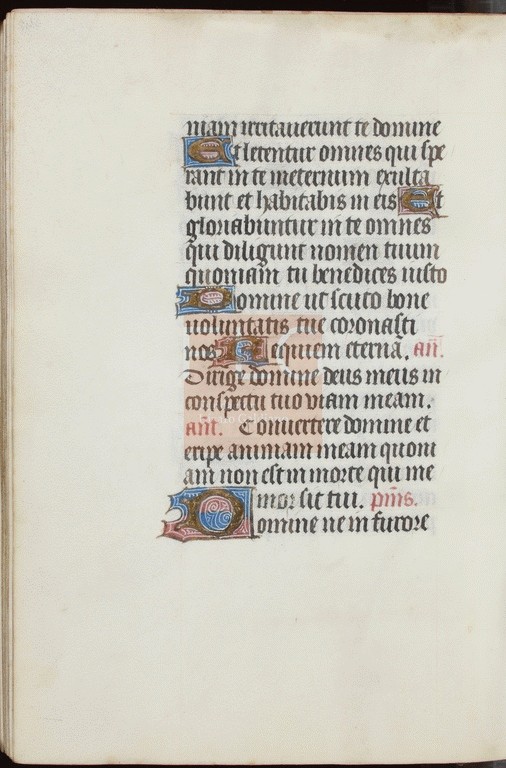 niam irritauerunt te domine
Et letentur omnes qui spe
rant in te ineternum exulta
bunt et habitabis in eis Et
gloriabuntur in te omnes
qui diligunt nomen tuum
quoniam tu benedices iusto
Domine ut scuto bone
uoluntatis tue coronasti
nos Requiem eternã. añ.
Dirige domine deus meus in
conspectu tuo uiam meam.
ant. Conuertere domine et
eripe animam meam quoni
am non est in morte qui me
mor sit tui. pm̃s.
Domine ne in furore